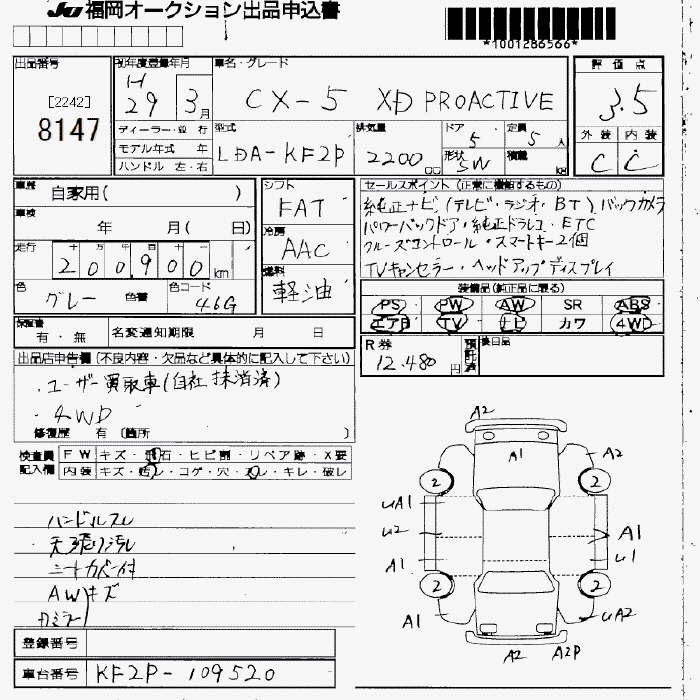 JU 福岡オークション出品申込書
*1001286566*
出品番号
[2242]
8147
初年度登録年月
H
29 3月
車名・グレード
CX-5 XD PROACTIVE
評価点
3.5
外装 内装
C C
ディーラー・並行
モデル年式 年
ハンドル 左・右
型式
LDA-KF2P
排気量
2200 cc
ドア
5
形状
SW
定員
5人
積載
kg
車歴
自家用( )
車検
年 月( 日)
走行
十 万 千 百 十
200900 km
色
グレー 色替
色コード
46G
シフト
FAT
冷房
AAC
燃料
軽油
セールスポイント(正常に機能するもの)
純正ナビ(テレビ・ラジオ・BT)バックカメラ
パワーバックドア・純正ドラレコ・ETC
クルーズコントロール・スマートキー2個
TVキャンセラー・ヘッドアップディスプレイ
装備品(純正品に限る)
PS PW AW SR ABS
エアB TV ナビ カワ 4WD
保証書
有・無
名変通知期限 月 日
R券
12,480円
預託済
後日品
出品店申告欄(不良内容・欠品など具体的に記入して下さい)
・ユーザー買取車(自社抹消済)
・4WD
修復歴 有 〔箇所 〕
検査員
記入欄
FW キズ・飛石・ヒビ割・リペア跡・X要
内装 キズ・汚レ・コゲ・穴・スレ・キレ・破レ
ハンドルスレ
天張り汚れ
シートカバー付
AWキズ
カミラー
登録番号
車台番号
KF2P-109520
A2
A1
A2
2
2
UA1
U2
A1
A1
U1
2
2
A1
UA2
A2
A2P